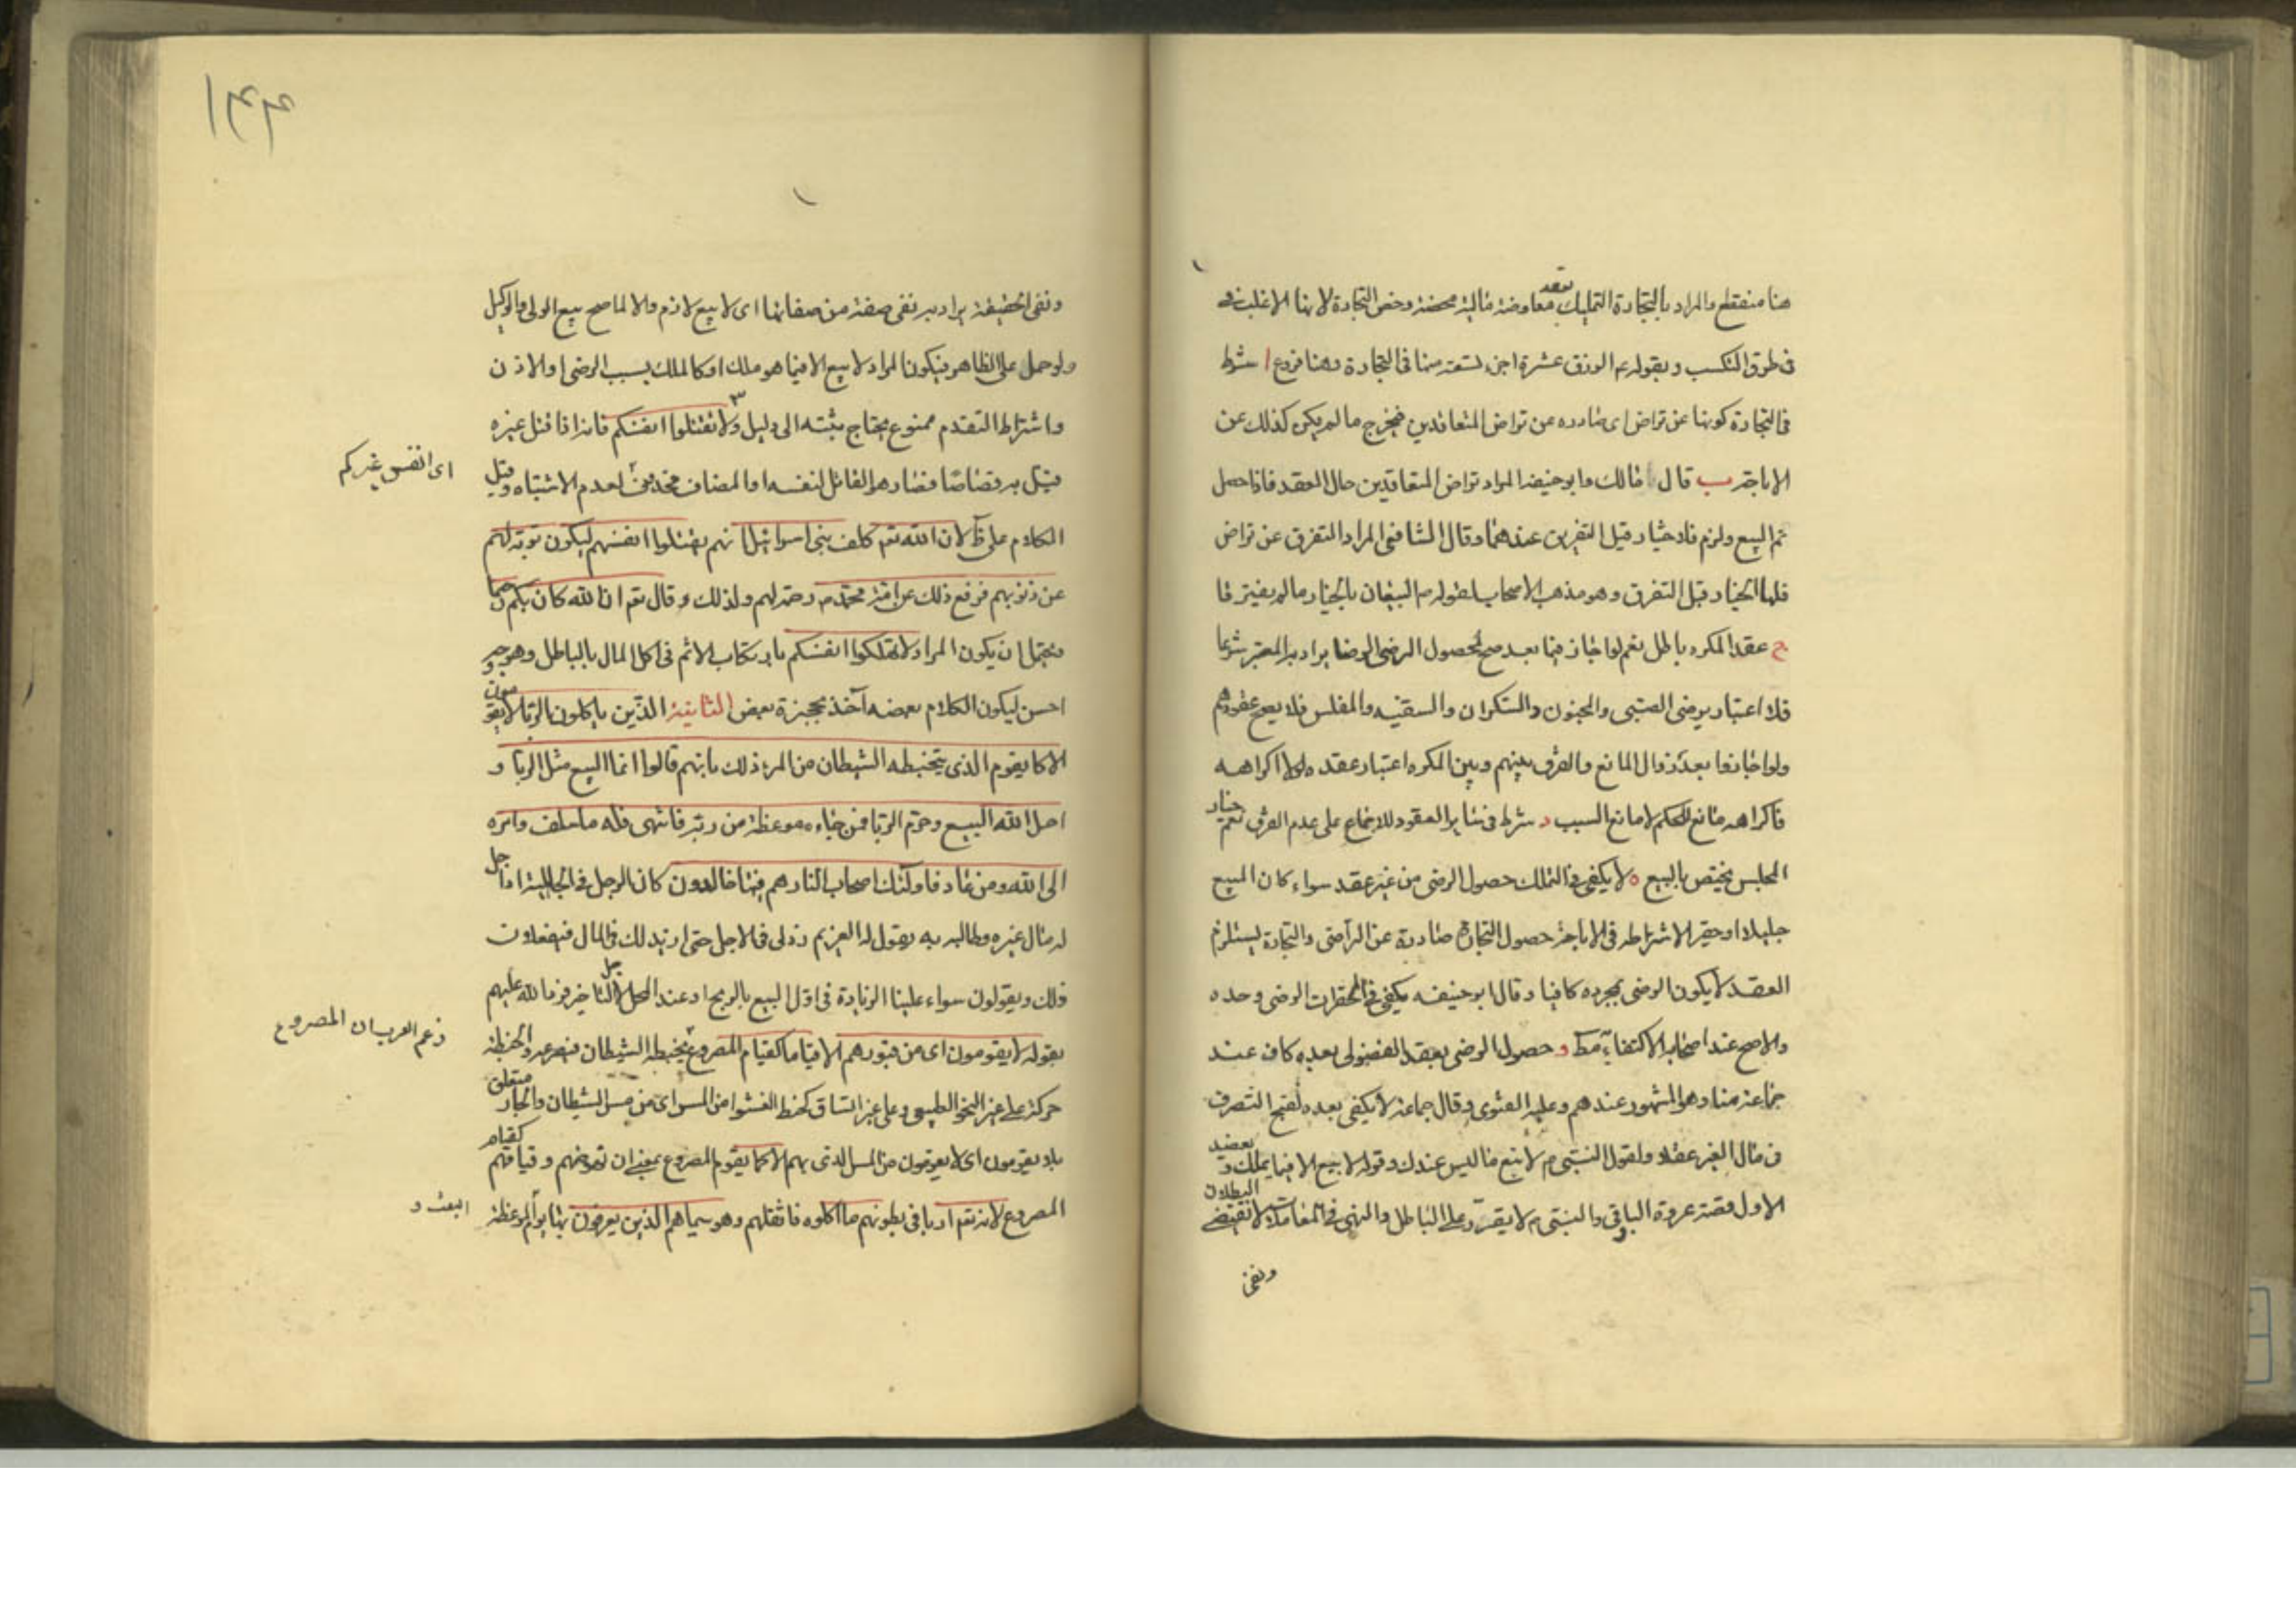 هنا منقطع والمراد بالتجارة التمليك بعقد معاوضة مالية محضة وخص التجارة لانها الاغلب
فى طرق التكسب وبقوله ع الرزق عشرة اجزاء تسعة منها فى التجارة وهنا فروع ا شرط
فى التجارة كونها عن تراض اى صادره عن تراض المتعاقدين فيخرج ما لم يكن كذلك عن
الاباحة ب قال مالك وابو حنيفة المراد تراض المتعاقدين حال العقد فاذا حصل
تم البيع ولزم فلا خيار قبل التفريق عندهما وقال الشافعى المراد التفرق عن تراض
فلهما الخيار قبل التفرق وهو مذهب الاصحاب لقوله ص البيعان بالخيار ما لم يفترقا
ج عقد المكره باطل نعم لو اجاز فيما بعد صح لحصول الرضى الرضا يراد به المعتبر شرعا
فلا اعتبار برضى الصبى والمجنون والسكران والسفيه والمفلس فلا يصح عقودهم
ولو اجازوا بعد زوال المانع والفرق بينهم وبين المكره اعتبار عقده لولا اكراهه
فاكراهه مانع للحكم لا مانع السبب د شرط فى سائر العقود للاجماع على عدم الفرق نعم خيار
المجلس يختص بالبيع ه لا يكفى فى التملك حصول الرضى من غير عقد سواء كان المبيع
جليلا او حقيرا لاشتراطه فى الاباحة حصول التجارة صادرة عن التراضى والتجارة يستلزم
العقد لا يكون الرضى بمجرده كافيا وقال ابو حنيفه يكفى فى المحقرات الرضى وحده
والاصح عند اصحابه الاكتفاء به مط و حصول الرضى بعقد الفضولى بعده كاف عند
جماعة منا وهو المشهور عندهم وعليه الفتوى وقال جماعة لا يكفى بعده لقبح التصرف
فى مال الغير عقلا ولقول النبى ص لا تبع ما ليس عندك وقوله لا بيع الا فيما يملك و يعضد
الاول قصة عروة البارقى والنبى ص لا يقر على الباطل والنهى فى المعاملات لا تقتضى البطلان
ونفى
١٤٤
ونفى الحقيقة يراد به نفى صفة من صفاتها اى لا بيع لازم والا لما صح بيع الولى والوكيل
ولو حمل على الظاهر فيكون المراد لا بيع الا فيما هو ملك او كالملك بسبب الرضى او الاذن
واشتراط التقدم ممنوع يحتاج مثبته الى دليل ٣ ولا تقتلوا انفسكم فانه اذا قتل غيره
قتل به قصاصا فصار هو القاتل لنفسه او المضاف محذوف لعدم الاشتباه وقيل
اى انفس غيركم
الكلام على ظ لان الله تع كلف بنى اسرائيل انهم يقتلوا انفسهم ليكون توبة لهم
عن ذنوبهم فرفع ذلك عن امة محمد ص رحمة لهم ولذلك وقال تع ان الله كان بكم رحيما
ويحتمل ان يكون المراد لا تهلكوا انفسكم بارتكاب الاثم فى اكل المال بالباطل وهو وجه
احسن ليكون الكلام بعضه آخذ بحجزة بعض الثانية الذين ياكلون الربا لا يقومون
الا كما يقوم الذى يتخبطه الشيطان من المس ذلك بانهم قالوا انما البيع مثل الربا و
احل الله البيع وحرم الربا فمن جاءه موعظة من ربه فانتهى فله ما سلف وامره
الى الله ومن عاد فاولئك اصحاب النار هم فيها خالدون كان الرجل فى الجاهلية اذا حل
له مال غيره وطالبه به يقول له الغريم زدنى فى الاجل حتى ازيد لك فى المال فيفعلان
ذلك ويقولون سواء علينا الزيادة فى اول البيع بالربح او عند المحل لاجل التاخير فرد الله عليهم
بقوله لا يقومون اى من قبورهم الا قياما كقيام المصروع يتخبطه الشيطان فيصرعه والخبط
زعم العرب ان المصروع
حركة على غير النحو الطبيعى وعلى غير اتساق كخبط العشوا من المس اى من مس الشيطان والجار متعلق
بلا يقومون اى لا يقومون من المس الذى بهم الا كما يقوم المصروع بمعنى ان نهوضهم وقيامهم كقيام
المصروع لانه تع اربا فى بطونهم ما اكلوه فاثقلهم وهو سيماهم الذين يعرفون بها يوم الموعظة
البعث و